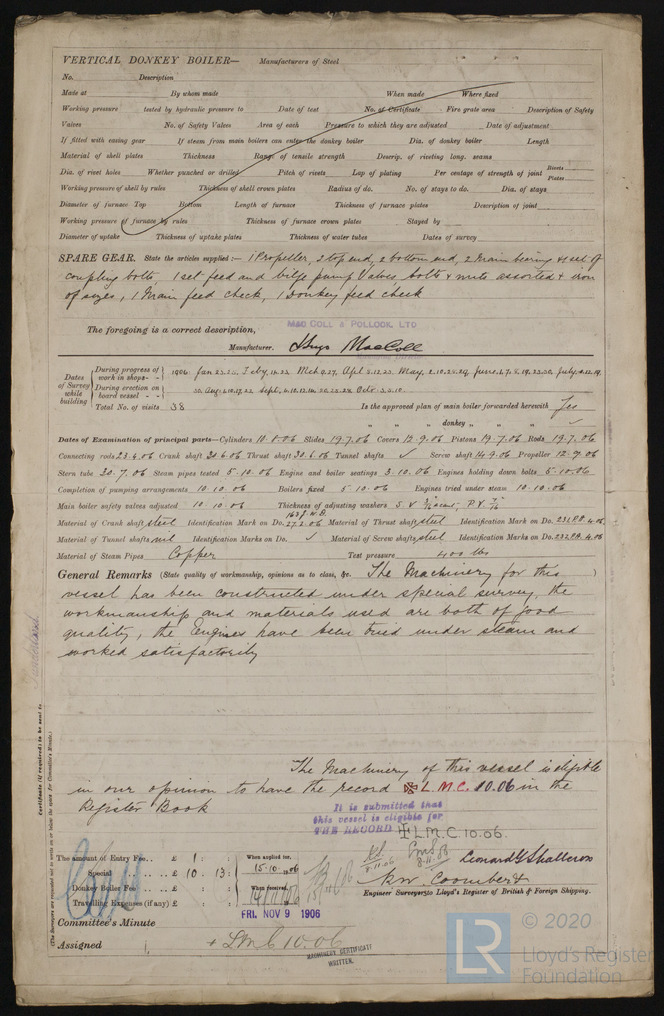 VERTICAL DONKEY BOILER— Manufacturers of Steel
No. Description
Made at By whom made When made Where fixed
Working pressure tested by hydraulic pressure to Date of test No. of Certificate Fire grate area Description of Safety
Valves No. of Safety Valves Area of each Pressure to which they are adjusted Date of adjustment
If fitted with easing gear If steam from main boilers can enter the donkey boiler Dia. of donkey boiler Length
Material of shell plates Thickness Range of tensile strength Descrip. of riveting long. seams
Dia. of rivet holes Whether punched or drilled Pitch of rivets Lap of plating Per centage of strength of joint Rivets Plates
Working pressure of shell by rules Thickness of shell crown plates Radius of do. No. of stays to do. Dia. of stays
Diameter of furnace Top Bottom Length of furnace Thickness of furnace plates Description of joint
Working pressure of furnace by rules Thickness of furnace crown plates Stayed by
Diameter of uptake Thickness of uptake plates Thickness of water tubes Dates of survey
SPARE GEAR. State the articles supplied:— 1 Propeller, 2 top end, 2 bottom end, 2 main bearing & 1 set of
coupling bolts, 1 set feed and bilge pump valves, bolts & nuts assorted & iron
of sizes, 1 Main feed check, 1 Donkey feed check
The foregoing is a correct description,
MAC COLL & POLLOCK, LTD
Manufacturer. Hugo MacColl
Dates of Survey while building
During progress of work in shops - - 1906. Jan Feby Mch 9.27. Apl May June July
During erection on board vessel - - Aug Sept Octr
Total No. of visits 38 Is the approved plan of main boiler forwarded herewith Yes
" " " donkey " " " ✓
Dates of Examination of principal parts—Cylinders 10.8.06 Slides 19.7.06 Covers 12.9.06 Pistons 19.7.06 Rods 19.7.06
Connecting rods 23.4.06 Crank shaft 30.6.06 Thrust shaft 30.6.06 Tunnel shafts ✓ Screw shaft 14.9.06 Propeller 12.9.06
Stern tube 20.7.06 Steam pipes tested 5.10.06 Engine and boiler seatings 3.10.06 Engines holding down bolts 5.10.06
Completion of pumping arrangements 10.10.06 Boilers fixed 5.10.06 Engines tried under steam 10.10.06
Main boiler safety valves adjusted 10.10.06 Thickness of adjusting washers
Material of Crank shaft steel Identification Mark on Do. 27.2.06 Material of Thrust shaft steel Identification Mark on Do.
Material of Tunnel shafts nil Identification Marks on Do. ✓ Material of Screw shafts steel Identification Marks on Do.
Material of Steam Pipes Copper Test pressure 400 lbs
General Remarks (State quality of workmanship, opinions as to class, &c. The Machinery for this )
vessel has been constructed under special survey, the
workmanship and materials used are both of good
quality, the Engines have been tried under steam and
worked satisfactorily
The Machinery of this vessel is eligible
in our opinion to have the record ✠ L.M.C. 10.06 in the
Register Book
It is submitted that
this vessel is eligible for
THE RECORD + L.M.C 10.06.
Certificate (if required) to be sent to
(The Surveyors are requested not to write on or below the space for Committee's Minute.)
Sunderland
The amount of Entry Fee . . £ 1 : : When applied for,
Special . . . . £ 10 . 13 : 15.10.1906
Donkey Boiler Fee . . . . £ : : When received,
Travelling Expenses (if any) £ : :
8.11.06
Leonard G Shallcross
R.W. Coomber &
Engineer Surveyors to Lloyd's Register of British & Foreign Shipping.
FRI. NOV 9 1906
Committee's Minute
Assigned + LMC 10.06
MACHINERY CERTIFICATE
WRITTEN.
LR
© 2020
Lloyd's Register
Foundation